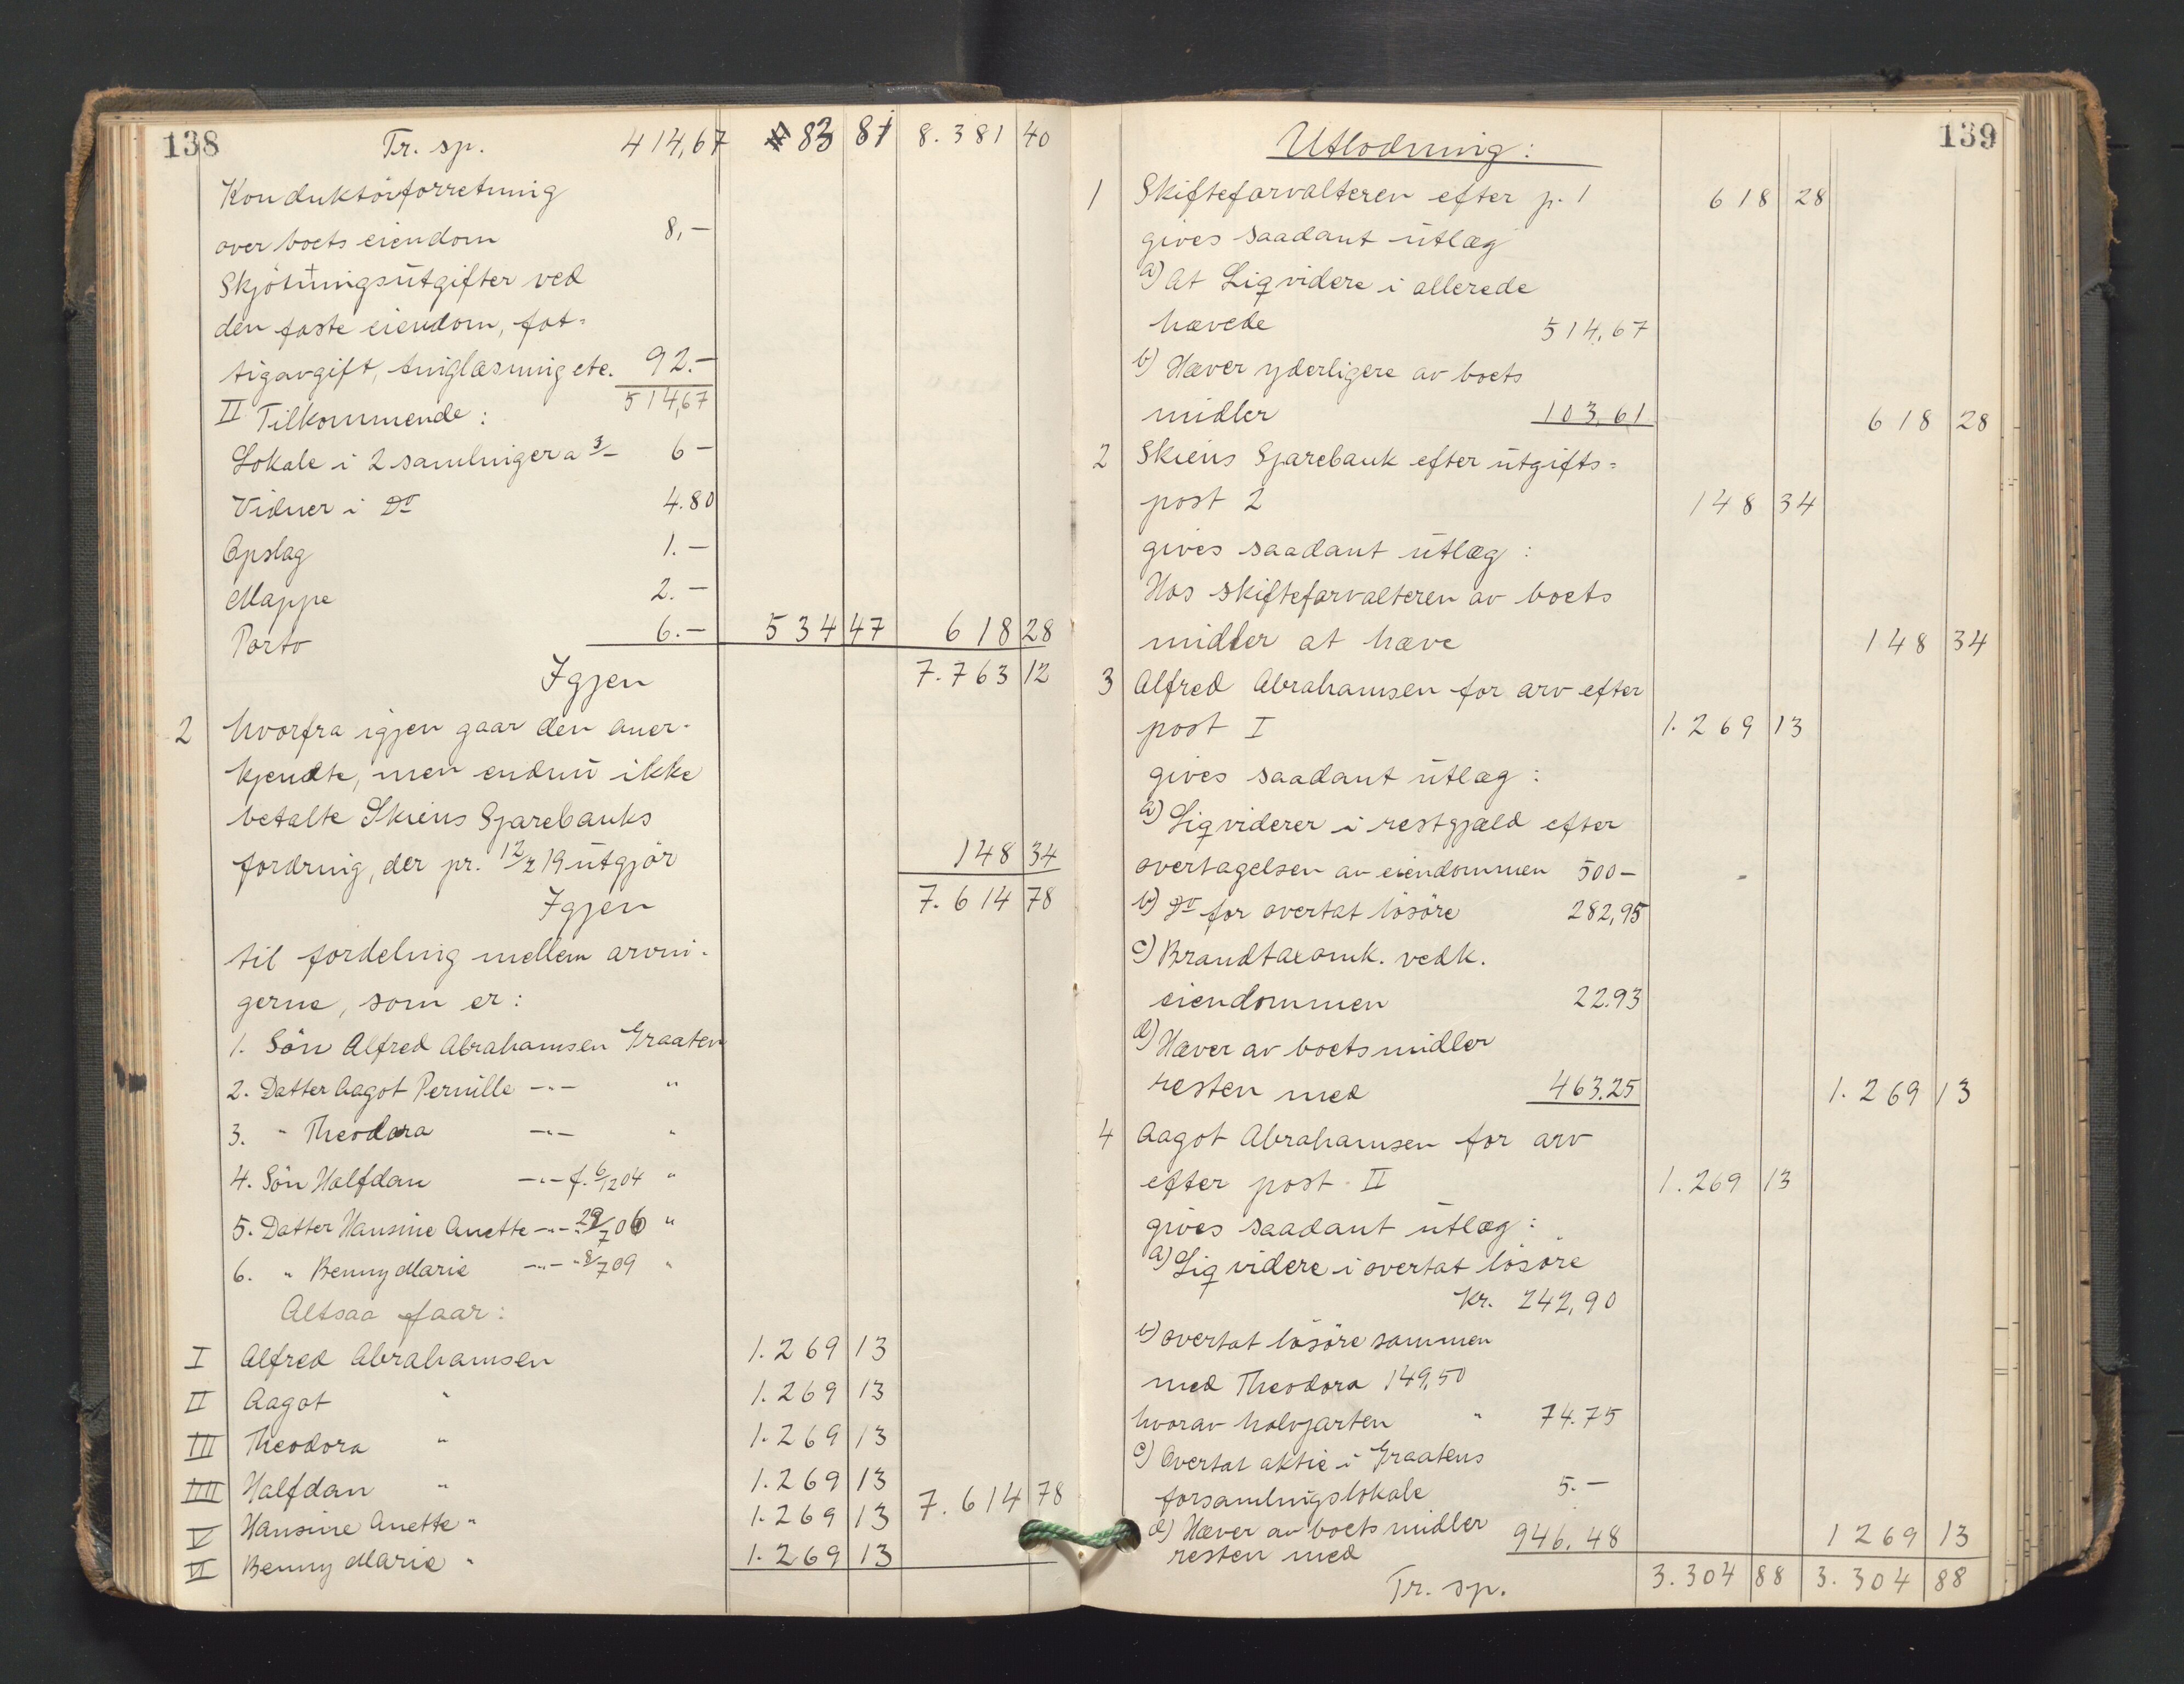 138
Tr. sp. 414,67 83 81 8.381 40
Konduktörforretning
over boets eiendom 8,—
Skjötningsutgifter ved
den faste eiendom, fat-
tigavgift, tinglæsning etc. 92.—
514,67
II Tilkommende:
Lokale i 2 samlinger a 3/— 6 —
Vidner i Do 4.80
Opslag 1.—
Mappe 2.—
Porto 6.— 534 47 618 28
Igjen 7.763 12
2 hvorfra igjen gaar den aner-
kjendte, men endnu ikke
betalte Skiens Sparebanks
fordring, der pr. 12/2 19 utgjör 148 34
Igjen 7.614 78
til fordeling mellem arvin-
gerne, som er:
1. Sön Alfred Abrahamsen Graaten
2. Datter Aagot Pernille —"— "
3. " Theodora —"— "
4. Sön Halfdan —"— f. 6/12 04 "
5. Datter Hansine Anette —"— " 29/7 06 "
6. " Benny Marie —"— " 8/7 09 "
Altsaa faar:
I Alfred Abrahamsen 1.269 13
II Aagot " 1.269 13
III Theodora " 1.269 13
IIII Halfdan " 1.269 13
V Hansine Anette " 1.269 13 7.614 78
VI Benny Marie " 1.269 13
139
Utlodning:
1 Skifteforvalteren efter p. 1 618 28
gives saadant utlæg
a) At Liqvidere i allerede
hævede 514,67
b) Hæver yderligere av boets
midler 103,61 618 28
2 Skiens Sparebank efter utgifts-
post 2 148 34
gives saadant utlæg:
Hos skifteforvalteren av boets
midler at hæve 148 34
3 Alfred Abrahamsen for arv efter
post I 1.269 13
gives saadant utlæg:
a) Liqviderer i restgjæld efter
overtagelsen av eiendommen 500—
b) Do for overtat lösöre 282,95
c) Brandtaxomk. vedk.
eiendommen 22.93
d) Hæver av boets midler
resten med 463.25 1.269 13
4 Aagot Abrahamsen for arv
efter post II 1.269 13
gives saadant utlæg:
a) Liqvidere i overtat lösöre
Kr. 242,90
b) overtat lösöre sammen
med Theodora 149,50
hvorav halvparten " 74.75
c) Overtat aktie i Graatens
forsamlingslokale 5.—
d) Hæver av boets midler
resten med 946.48 1269 13
Tr. sp. 3.304 88 3.304 88